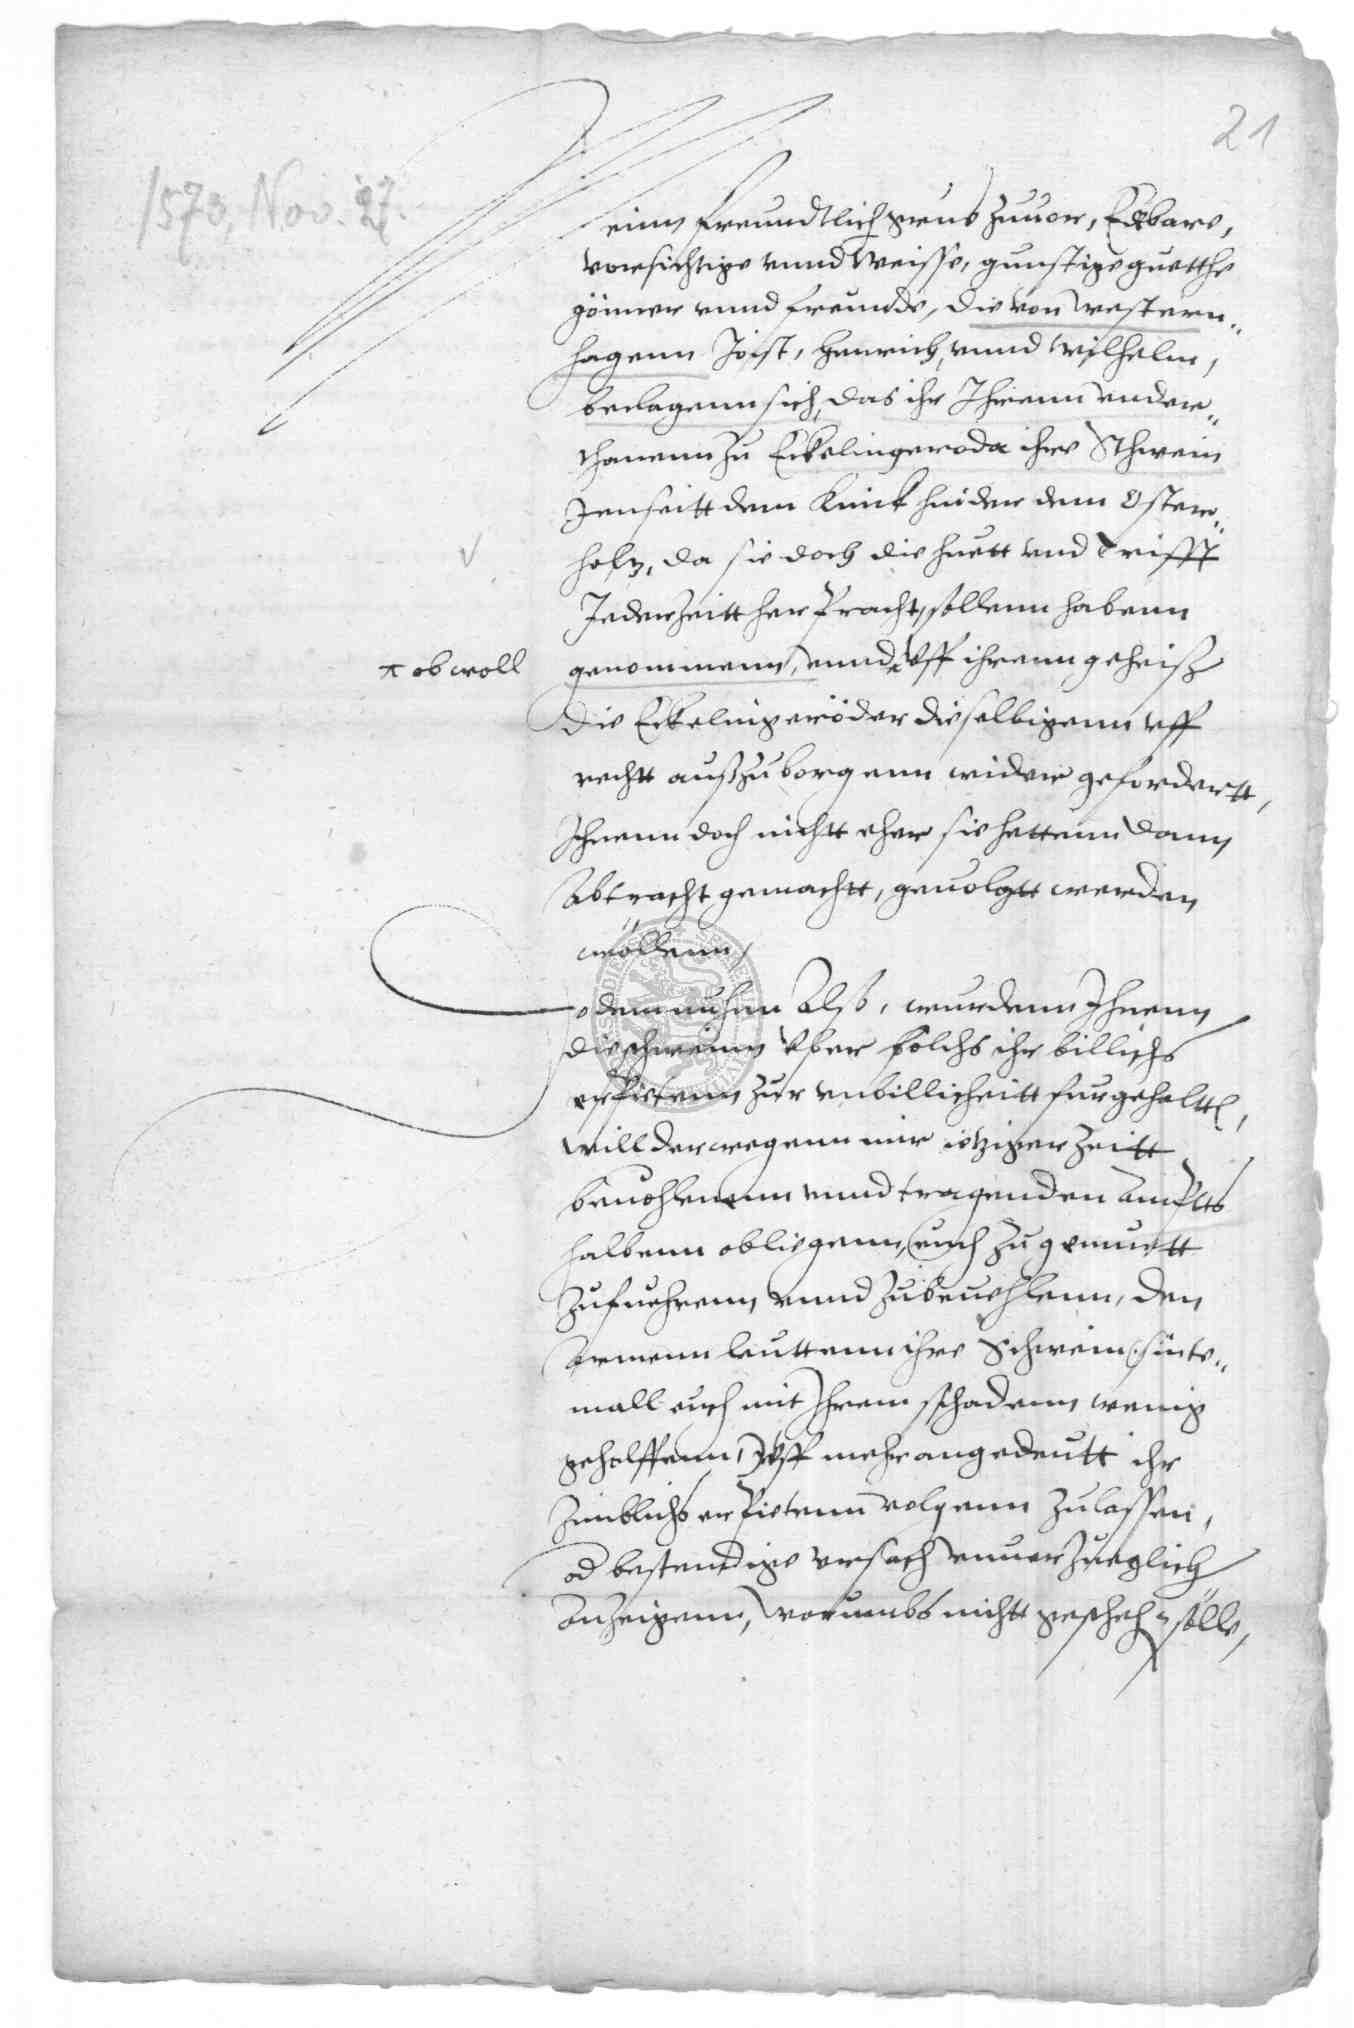 21
1573, Nov. 27.
Mein freundtlich grus zuuor, Erbare,
vorsichtige vnnd Weisse, gunstige guetthe
gönner vnnd freunde, die von Western„
hagenn Jost, Henrich, vnnd Wilhelm,
beclagenn sich, das ihr Ihrenn vnder„
thanenn zu Eckelingeroda ihre Schwein
Jenseitt dem Knick hinder dem Oster„
holtz, da sie doch die huett vnd Trifft
Jederzeitt herpracht, sollenn habenn
genommenn, vnnd Vff ihrenn geheiß
⊼ ob woll
die Eckelingeröder dieselbigenn vff
rechtt außzuborgenn wider gefordertt,
Ihnenn doch nichtt eher sie hettenn dann
Abtracht gemachtt, geuolgtt werden
wöllenn,
So dem nuhnn Also, wurdenn Ihnenn
die schweinn Vber solchs ihr billichs
erpietenn zur vnbillicheitt furgehaltt,
will derwegenn mir itziger Zeitt
beuohlenenn vnnd tragenden Ampts
halbenn obliegenn, euch zu gemuett
zufuehrenn vnnd zubeuehlenn, den
Armenn leuttenn ihre Schwein (: sinte„
mall euch mit Ihrem schadenn wenig
geholffenn,) Vff mehr angedeutt ihr
Zimblichs erpietenn volgenn zulassen,
od bestendige vrsach vnuerzueglich
Anzeigenn, worumbs nichtt gescheh solle,